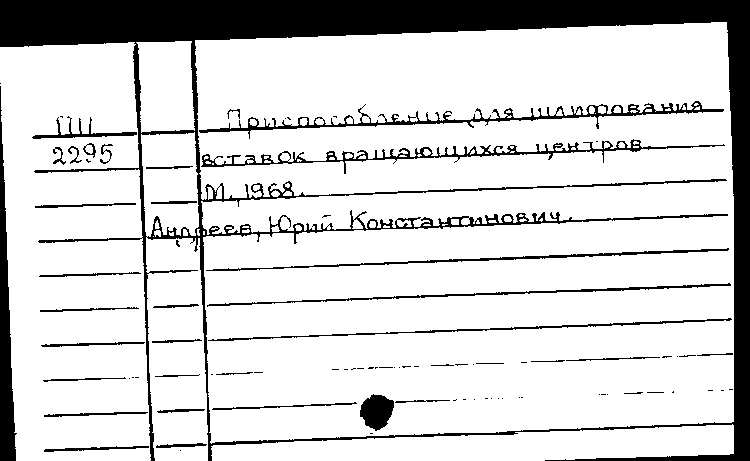 ПШ Приспособление для шлифования
2295 вставок вращающихся центров.
М., 1968.
Андреев, Юрий Константинович.